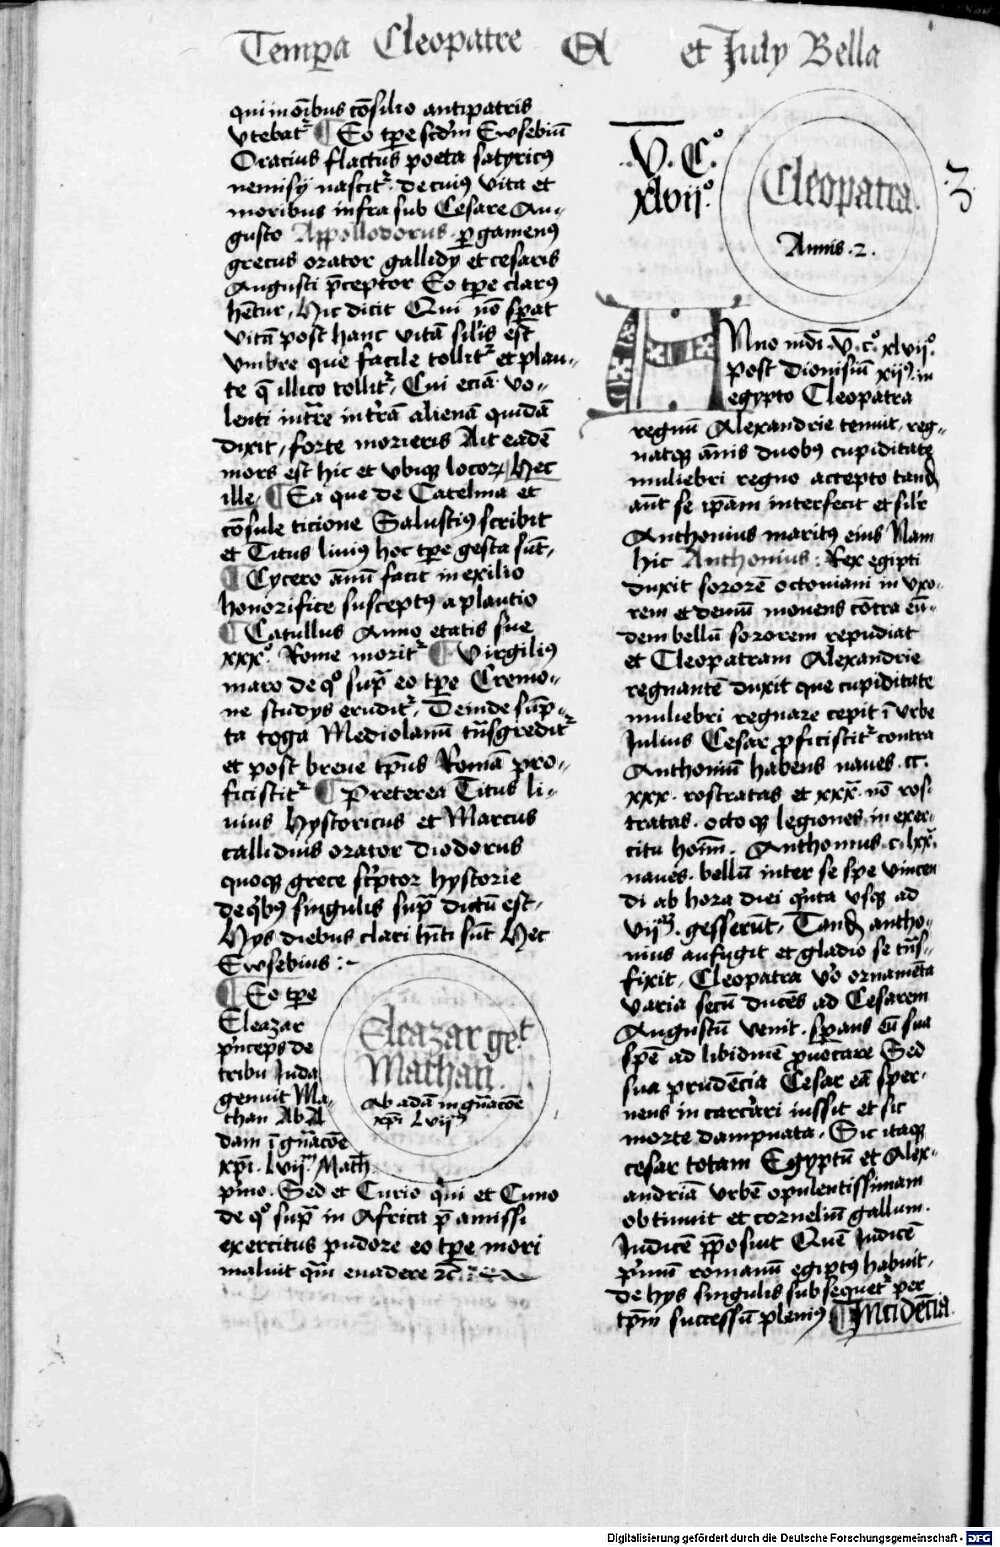 Temp̄a Cleopatre Et et July Bella
qui in oībus cōsilio antipatris
vtebat᷑ ¶ Eo tp̄e scd̄m Ewsebiū
Oracius flactus poeta satyricꝯ
nemisij nascit᷑. de cuiꝯ vita et
moribus infra sub Cesare Au-
gusto Appollodorus ꝑgamenꝯ
grecus orator gallidꝯ et cesaris
Augusti p̄ceptor Eo tp̄e clarꝯ
hētur, Hic dicit Qui nō sperat
vitā post hanc vitā sil̄is est
vmbre que facile tollit᷑ et plan-
te q̄ illico tollit᷑, Cui eciā vo-
lenti int̄re in t̄rā alienā quidā
dixit, forte morieris Ait eadē
mors est hic et vbiqꝫ locoꝝ, Hec
ille, ¶ Ea que de Catelina et
cōsule ticione Salustiꝯ scribit
et Titus liuiꝯ hoc tp̄e gesta sūt,
¶ Cycero annū facit in exilio
honorifice susceptꝯ a plautio
¶ Catullus Anno etatis sue
xxxº. Rome morit᷑ ¶ Virgiliꝯ
maro de qº sup̄ eo tp̄e Cremo-
ne studijs erudit᷑, Deinde sūp-
ta toga Mediolanū tn̄sgredit᷑
et post breue tp̄us Romā pro-
ficiscit᷑ ¶ Preterea Titus li-
uius Hystoricus et Marcus
callidius orator Diodorus
quoqꝫ grece sc̄ptor hystorie
de qͥbꝯ singulis sup̄ dictū est,
Hys diebus clari hn̄ti sūt Hec
Ewsebius :~
¶ Eo tp̄e
Eleazar
p̄nceps de
tribu Juda
genuit Ma-
than Ab A
dam ī gn̄acōe
xp̄i. lvijᵃ Math̄
Eleazar geᵗ
Mathan.
Ab adā in gn̄acōe
xp̄i lvijᵃ
p̄mo. Sed et Curio qui et Cuno
de qº sup̄ in Africa p̄ amissi
exercitus pudore eo tp̄e mori
maluit qm̄ euadere ⁊c̄
.V. Cº.
xlvijº.
Cleopatra.
Annis .2.
.3.
Anno mdī .V. cº. xlvijº.
post dionisiū xijº. in
egypto Cleopatra
regnū Alexandrie tenuit, reg-
natqꝫ annis duobꝯ cupiditate
muliebri regno accepto tand̄
ant̄ se ip̄am interfecit et sil̄r
Anthonius maritꝯ eius Nam
hic Anthonius: Rex egipti
duxit sororē octouiani in vxo-
rem et demū mouens cōtra eū-
dem bellū sororem repudiat
et Cleopatram Alexandrie
regnantē duxit que cupiditate
muliebri regnare cepit ī vrbe
Julius Cesar p̱ficiscit᷑ contra
Anthoniū habens naues .cc.
xxx. rostratas et xxx. nō ros-
tratas. octo qꝫ legiones in exer-
citu hoīm. Anthonius .c. lxx.
naues. bellū inter se spe vincen
di ab hora diei qͥnta vsqꝫ ad
vijᵃᵐ. gesserūt, Tand̄ antho-
nius aufugit et gladio se tn̄s-
fixit, Cleopatra vº ornamēta
varia secū ducēs ad Cesarem
Augustū venit. sperans cū sua
spē ad libidinē p̱uocare Sed
sua prudēcia Cesar eā sper-
nens in carcerari iussit et sic
morte dampnata. Sic itaqꝫ
cesar totam Egyptū et Alex-
andriā vrbē opulentissimam
obtinuit et corneliū gallum.
Judicē p̄posuit Quē Judicē
p̄mū romanū egiptꝯ habuit.
de hys singulis subsequet᷑ per
tp̄m successū pleniꝯ ¶ Incidēcia.
Digitalisierung gefördert durch die Deutsche Forschungsgemeinschaft - DFG